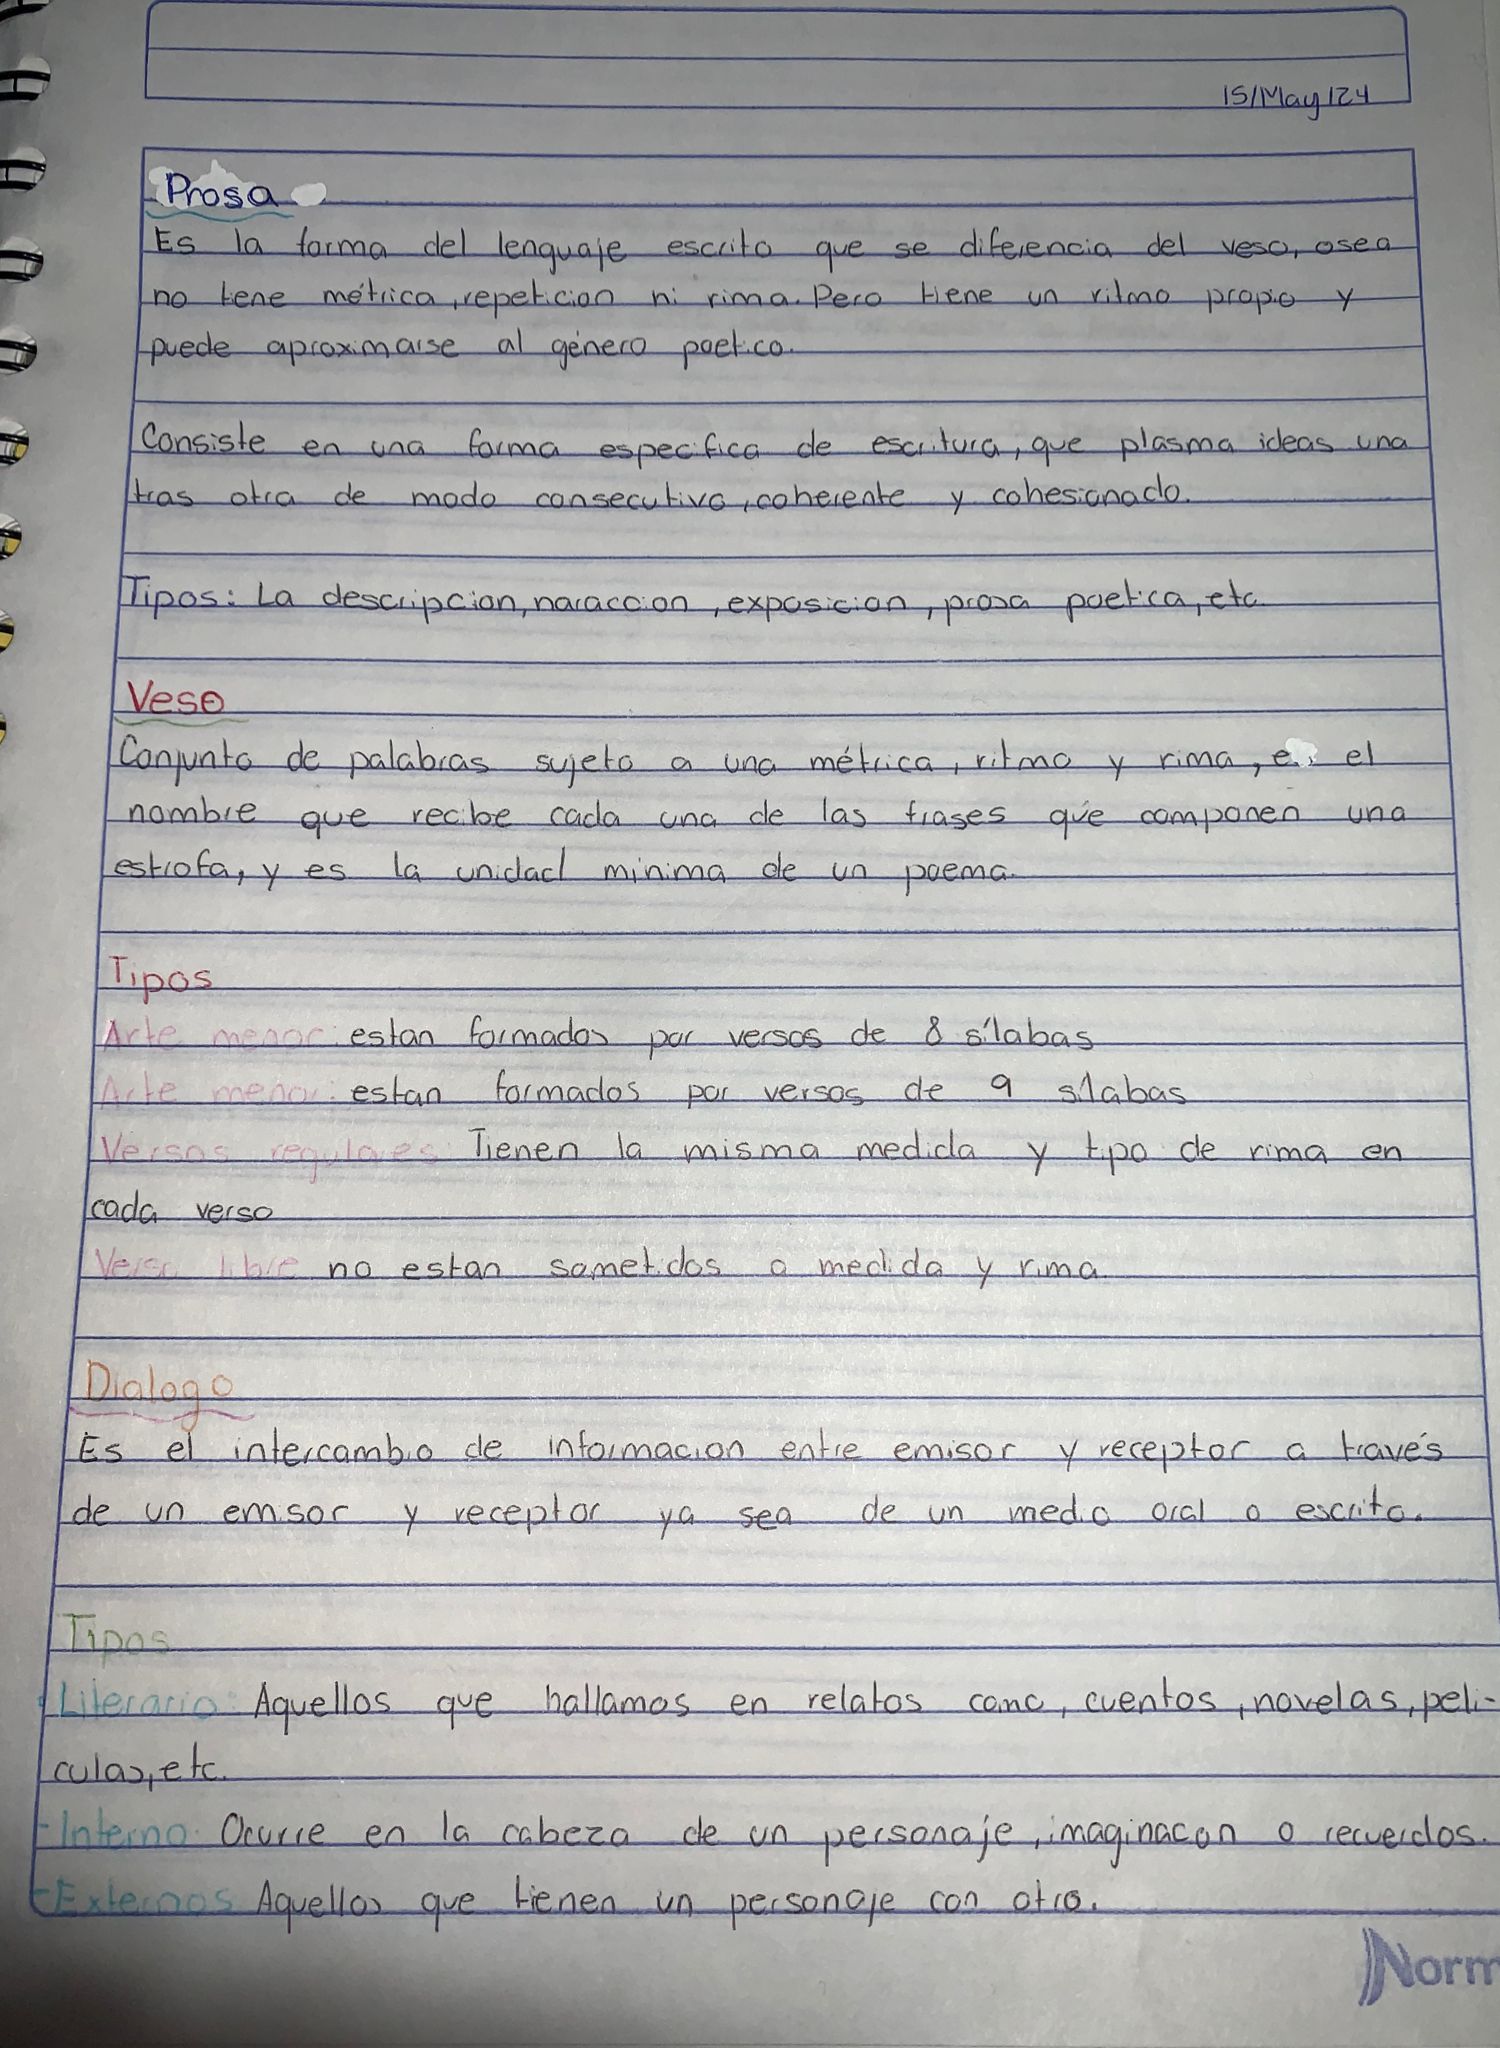 15/May/24
Prosa
Es la forma del lenguaje escrito que se diferencia del veso, osea
no tiene métrica, repeticion ni rima. Pero tiene un ritmo propio y
puede aproximarse al género poetico.
Consiste en una forma especifica de escritura, que plasma ideas una
tras otra de modo consecutivo, coherente y cohesionado.
Tipos: La descripcion, naraccion, exposicion, prosa poetica, etc.
Veso
Conjunto de palabras sujeto a una métrica, ritmo y rima, es el
nombre que recibe cada una de las frases que componen una
estrofa, y es la unidad minima de un poema.
Tipos
Arte menor: estan formados por versos de 8 sílabas
Arte menor: estan formados por versos de 9 silabas
Versos regulares: Tienen la misma medida y tipo de rima en
cada verso
Verso libre no estan sometidos a medida y rima.
Dialogo
Es el intercambio de informacion entre emisor y receptor a través
de un emisor y receptor ya sea de un medio oral o escrito.
Tipos
-Literario: Aquellos que hallamos en relatos como, cuentos, novelas, peli-
culas, etc.
-Interno: Ocurre en la cabeza de un personaje, imaginacon o recuerdos.
-Externos Aquellos que tienen un personaje con otro.
Norm